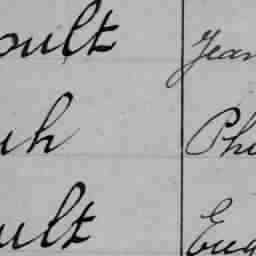 oult Jean
uh Phi
ult Eug